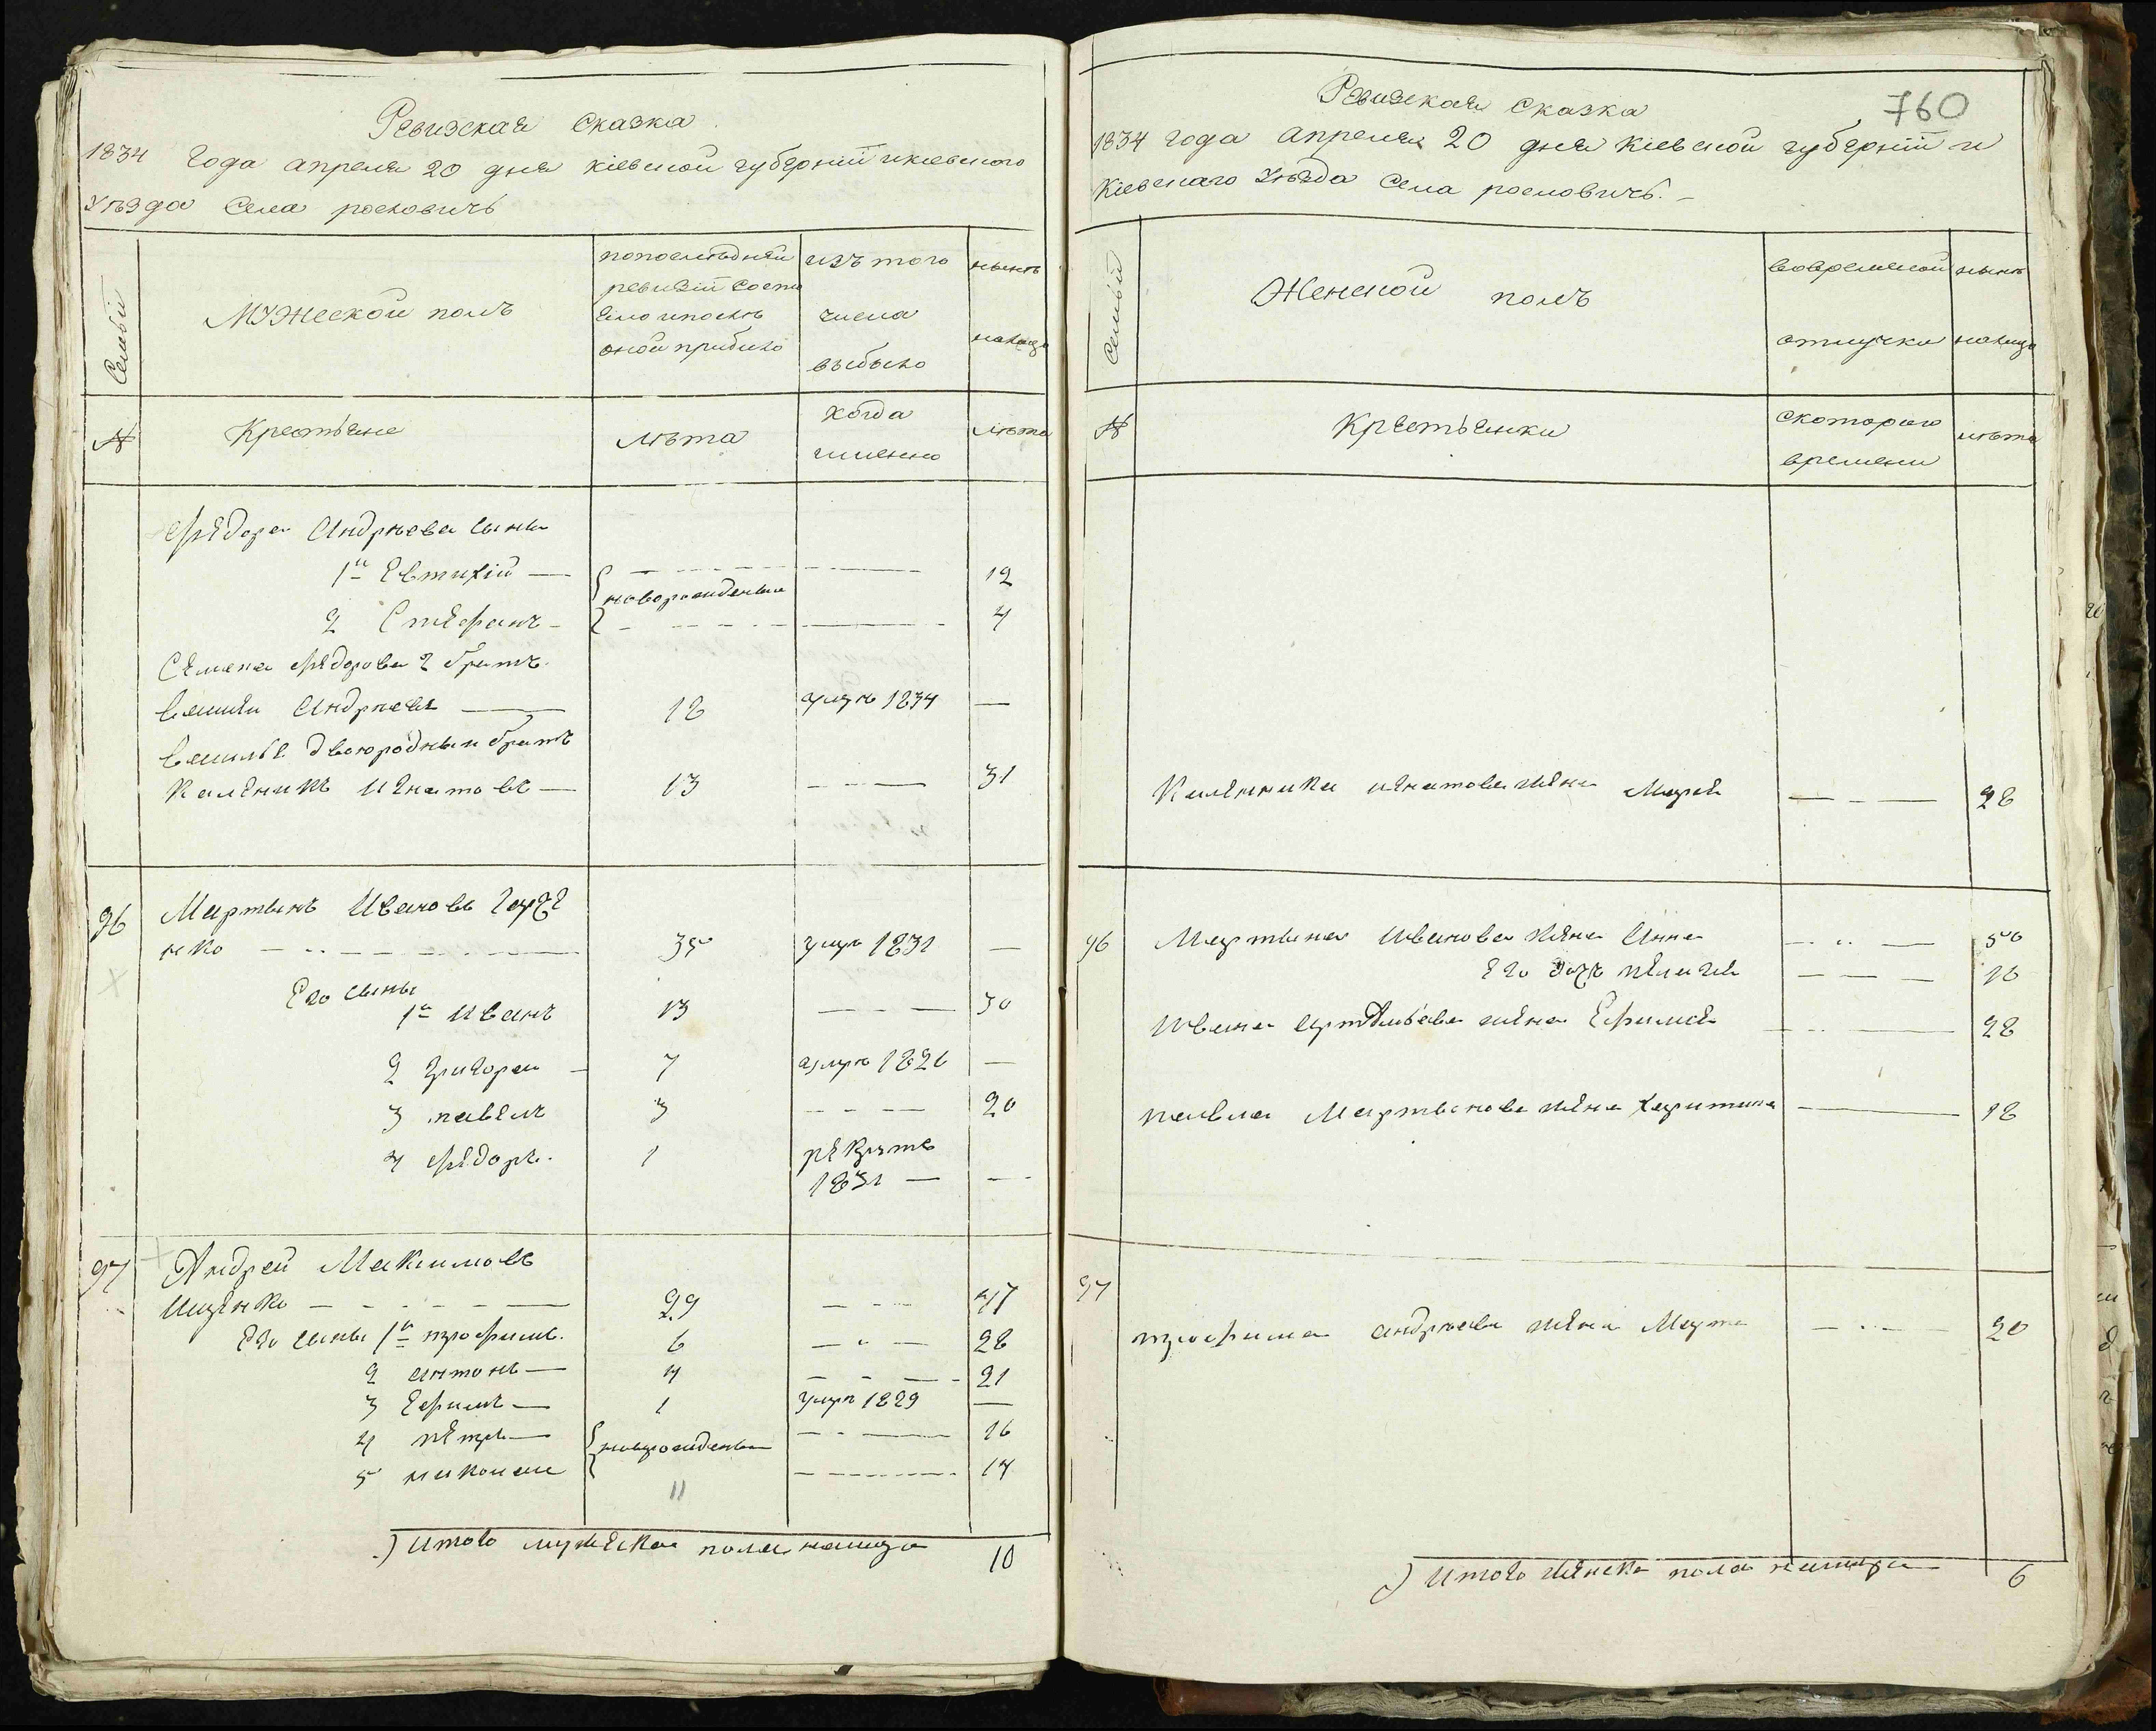 Ревизская Сказка
1834 Года апреля 20 дня кіевской губерніи и кіевского
уѣзда Села рославичь
Семьи
Мужеской полъ
по последней
ревизіи состо
яло и после
оной прибыло
изъ того
числа
выбыло
нынѣ
налицо
№
Крестьяне
лѣта
когда
именно
лѣта
Фёдора Андрѣева сыны
1й Евтихій — новорожденныи — 12
2 Стефанъ — 4
Семена Фёдорова 2 братъ
Василій Андрѣевъ — 18 умре 1834 —
Василья двоюродный братъ
Каленикъ Игнатовъ — 13 — 31
96 Мартынъ Ивановъ
нко — 35 умре 1831 —
Его сыны
1й Иванъ 13 — 30
2 Григорей — 7 умре 1826 —
3 павелъ 3 — 20
4 Фёдоръ 1 рекрутъ
1831 — —
97 Андрей Максимовъ
Ищенко — 29 — 47
Его сыны 1й трофимъ 6 — 28
2 антонъ — 4 — 21
3 Ефимъ — 1 умре 1829 —
4 петръ — новорожденныи — 16
5 николай — 14
11
Итого мужеска пола налицо 10
760
Ревизская Сказка
1834 года апреля 20 дня кіевской губерніи и
Кіевскаго уѣзда Села рославичь.
Семьи
Женской полъ
во временной
отлучке
нынѣ
налицо
№
Крестьянки
с котораго
времени
лѣта
Каленика игнатова жена Марія — 28
96 Мартына Иванова жена Анна — 50
Его дочь пелагея — 16
Ивана жена Ефимія — 28
павла Мартынова жена Харитина — 18
97
трофима андрѣева жена Марта — 20
Итого женска пола налицо 6